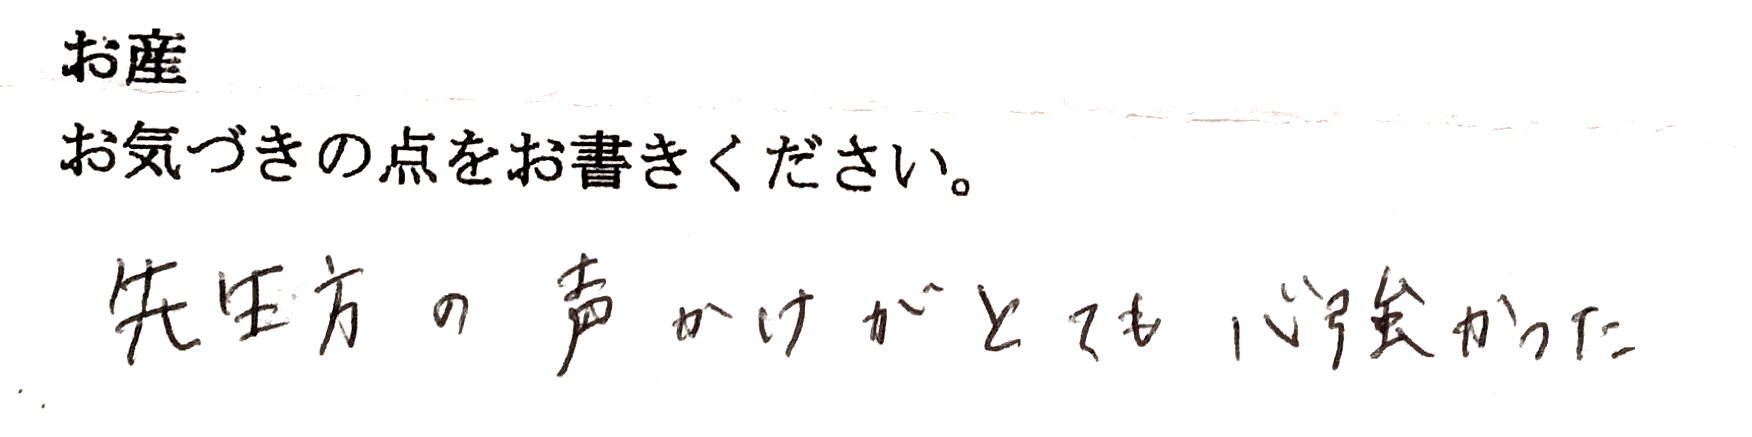 お産
お気づきの点をお書きください。
先生方の声かけがとても心強かった